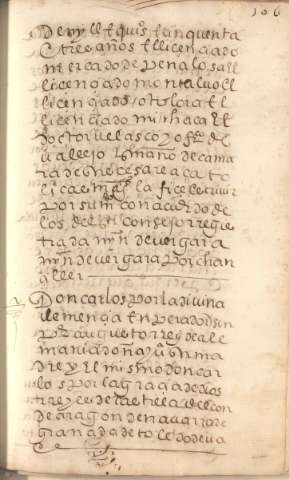 106
de mill e qui^os e cinquenta
e tres años el licenciado
mercado de peñalosa el
licençiado montalvo el
licençiado otalora el
licençiado mirchaca el
doctor velasco yo fr^co de
vallejo escriuano de cama
ra de sus çesarea e cato
licas mag^s la fice escriuir
por su m^do con acuerdo de
los del su consejo regis
trada m^n de vergara
m^n de vergara por chan
çiller
Don carlos por la diuina
clemençia enperador sen
per augusto rrey de ale
mania doña ju^a su ma
dre y el mismo don car
los por la graçia de dios
rreyes de castilla de leon
de aragon de nauarra de
granada de toledo de va